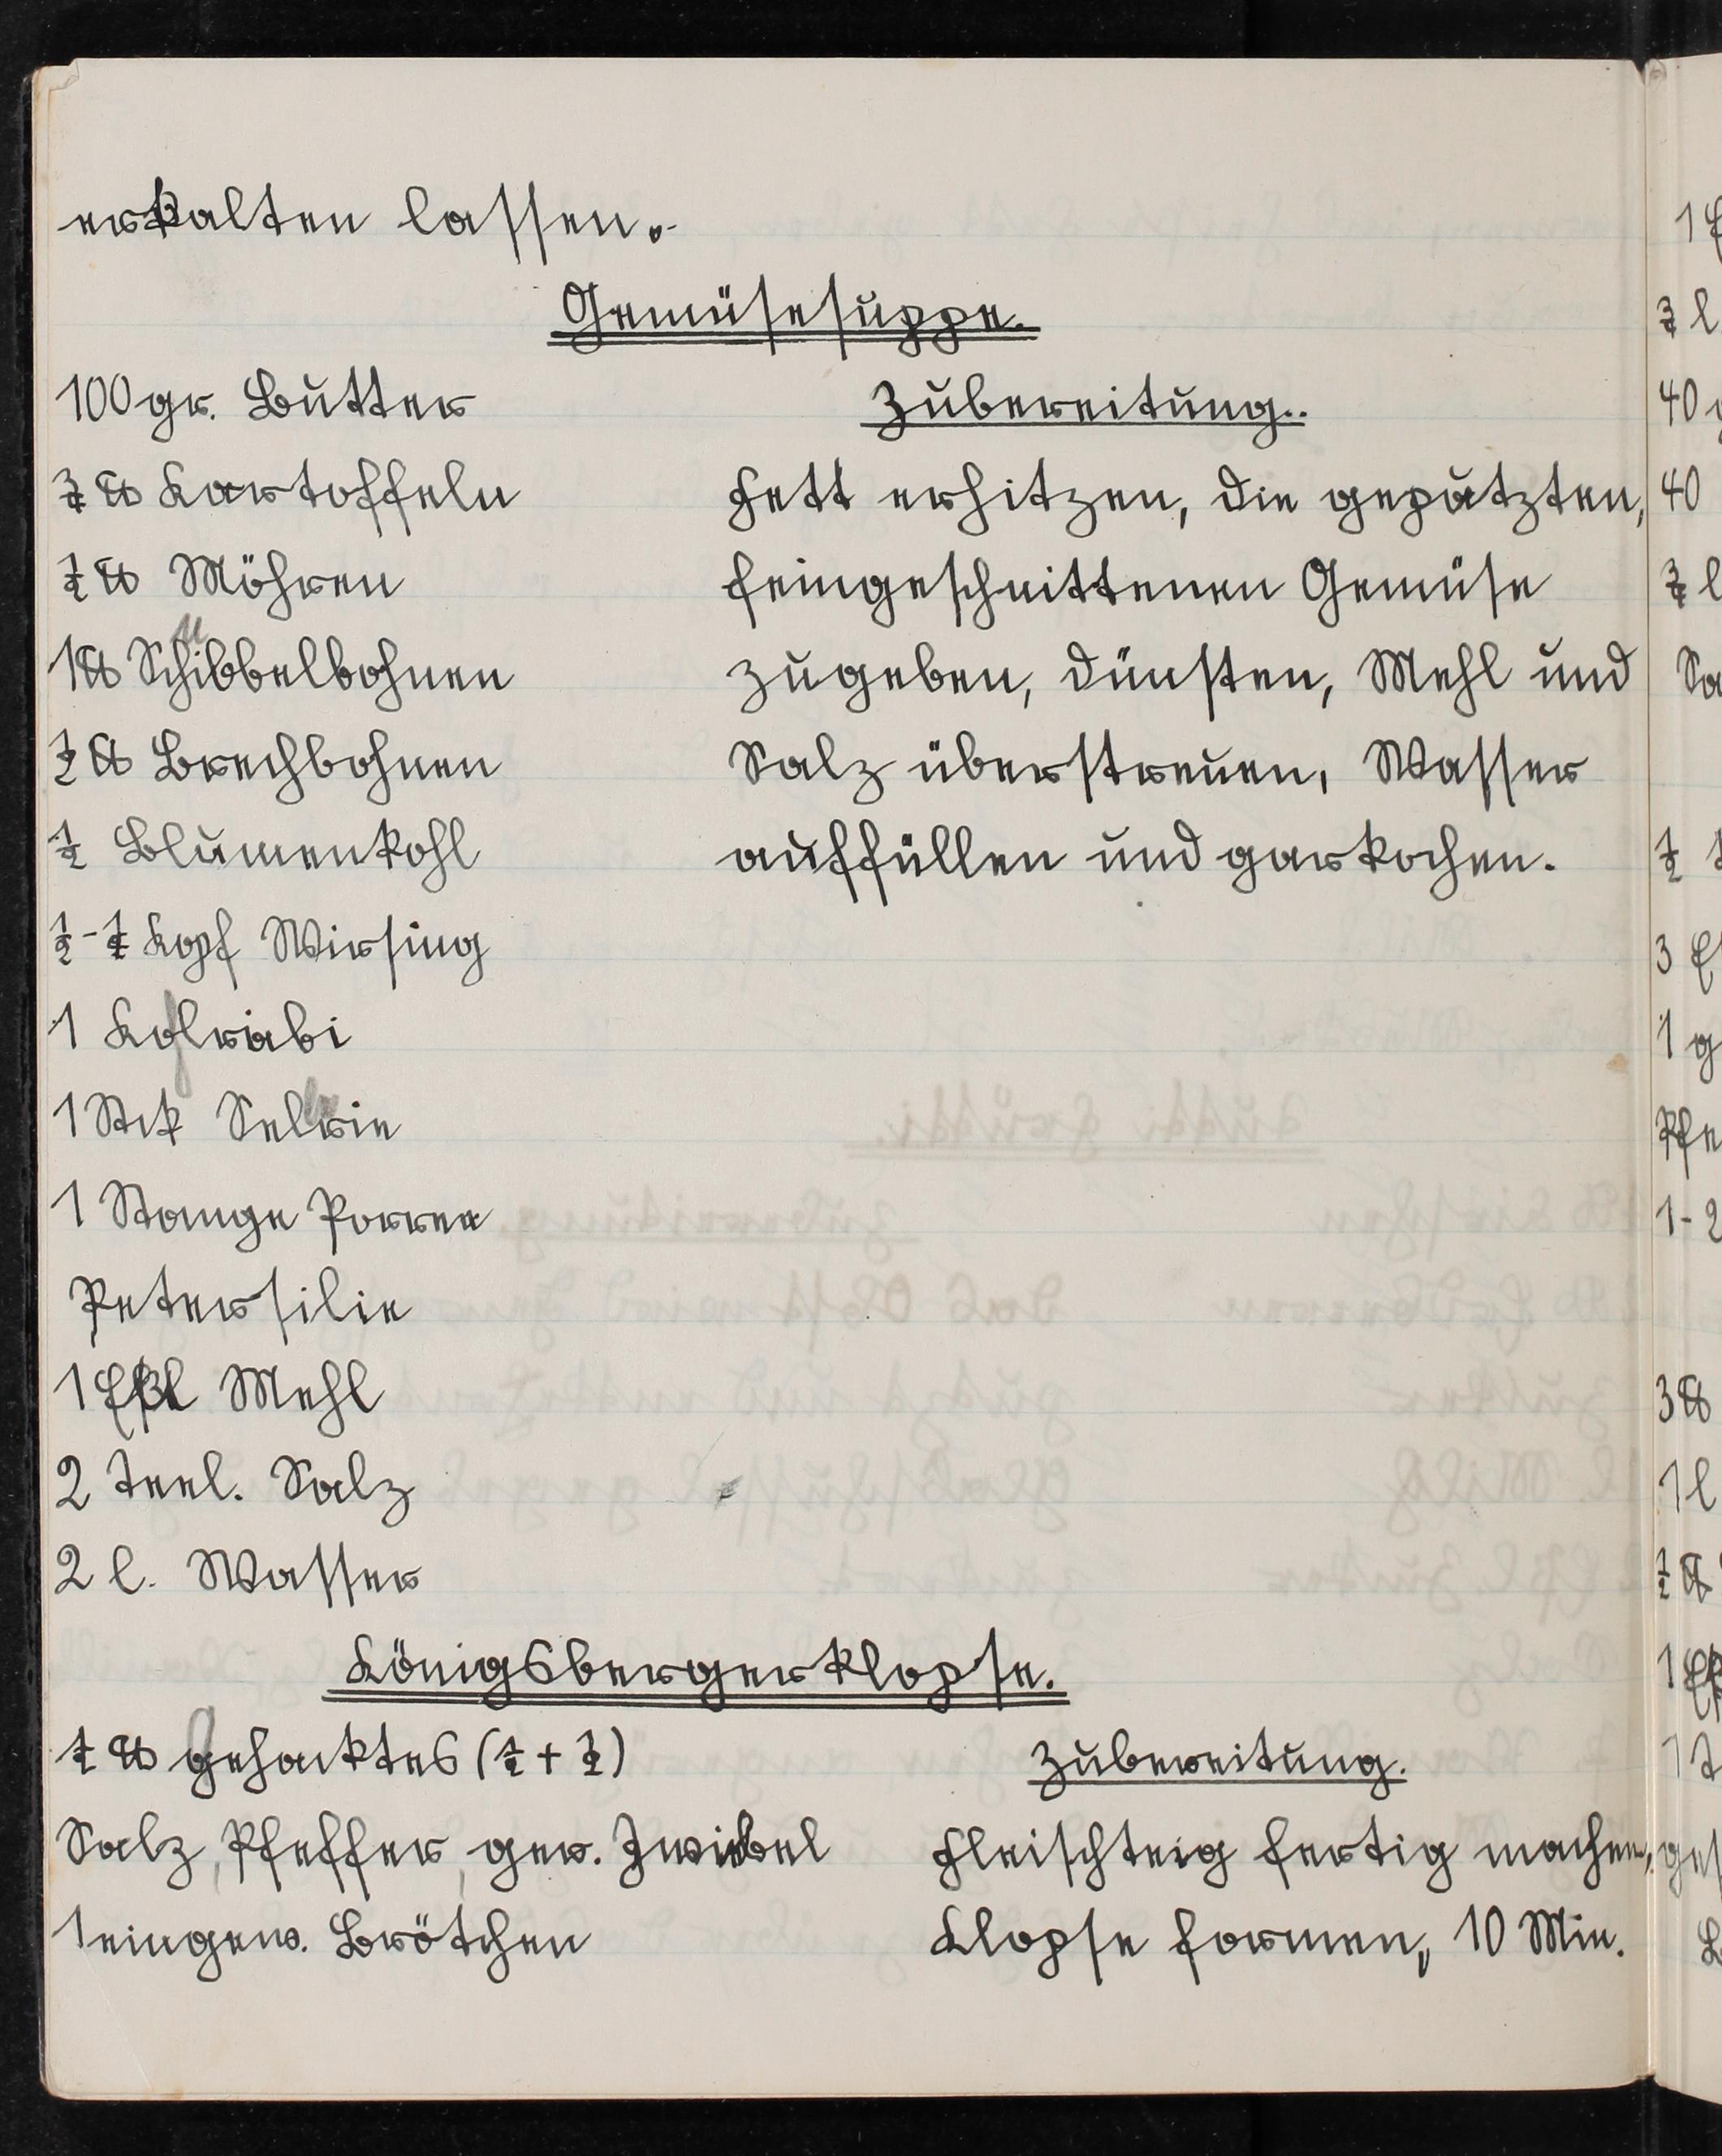 erkalten lassen.
Gemüsesuppe.
100 gr. Butter
¾ ℔ Kartoffeln
½ ℔ Möhren
1 ℔ Schibbelbohnen
½ ℔ Brechbohnen
½ Blumenkohl
½-¼ Kopf Wirsing
1 Kolrabi
1 Stck Selrie
1 Stange Porree
Petersilie
1 Eßl Mehl
2 Teel. Salz
2 l. Wasser
Zubereitung.
Fett erhitzen, die geputzten,
feingeschnittenen Gemüse
zugeben, dünsten, Mehl und
Salz überstreuen, Wasser
auffüllen und garkochen.
Königsbergerklopse.
½ ℔ gehacktes (½ + ½)
Salz, Pfeffer, ger. Zwiebel
1 eingew. Brötchen
Zubereitung.
Fleischteig fertig machen,
Klopse formen, 10 Min.